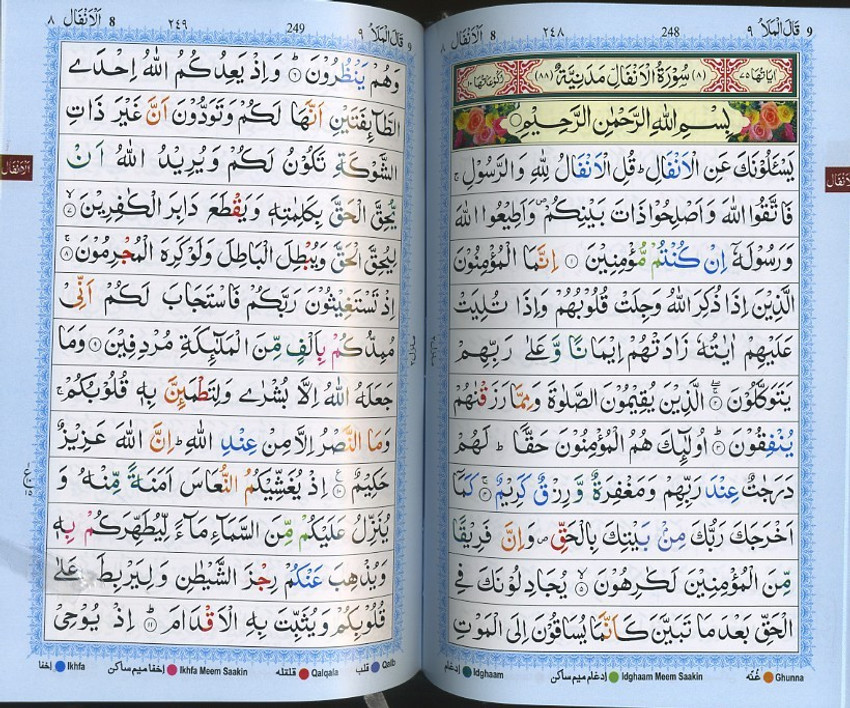 ٩ قَالَ الْمَلَاُ 9
248
٢٤٨
8 اَلْاَنْفَال ٨
اٰیَاتُهَا ٧٥ (٨) سُوْرَةُ الْاَنْفَالِ مَدَنِیَّةٌ (٨٨) رُكُوْعَاتُهَا ١٠
بِسْمِ اللّٰهِ الرَّحْمٰنِ الرَّحِیْمِ
یَسْـَٔلُوْنَكَ عَنِ الْاَنْفَالِ ؕ قُلِ الْاَنْفَالُ لِلّٰهِ وَ الرَّسُوْلِ ۚ
فَاتَّقُوا اللّٰهَ وَ اَصْلِحُوْا ذَاتَ بَیْنِكُمْ ۪ وَ اَطِیْعُوا اللّٰهَ
وَ رَسُوْلَهٗۤ اِنْ كُنْتُمْ مُّؤْمِنِیْنَ ۝۱ اِنَّمَا الْمُؤْمِنُوْنَ
الَّذِیْنَ اِذَا ذُكِرَ اللّٰهُ وَجِلَتْ قُلُوْبُهُمْ وَ اِذَا تُلِیَتْ
عَلَیْهِمْ اٰیٰتُهٗ زَادَتْهُمْ اِیْمَانًا وَّ عَلٰی رَبِّهِمْ
یَتَوَكَّلُوْنَ ۝۲ۚۖ الَّذِیْنَ یُقِیْمُوْنَ الصَّلٰوةَ وَ مِمَّا رَزَقْنٰهُمْ
یُنْفِقُوْنَ ۝۳ؕ اُولٰٓىِٕكَ هُمُ الْمُؤْمِنُوْنَ حَقًّا ؕ لَهُمْ
دَرَجٰتٌ عِنْدَ رَبِّهِمْ وَ مَغْفِرَةٌ وَّ رِزْقٌ كَرِیْمٌ ۝۴ۚ كَمَاۤ
اَخْرَجَكَ رَبُّكَ مِنْۢ بَیْتِكَ بِالْحَقِّ ۪ وَ اِنَّ فَرِیْقًا
مِّنَ الْمُؤْمِنِیْنَ لَكٰرِهُوْنَ ۝۵ۙ یُجَادِلُوْنَكَ فِی
الْحَقِّ بَعْدَ مَا تَبَیَّنَ كَاَنَّمَا یُسَاقُوْنَ اِلَی الْمَوْتِ
ادغام Idghaam ادغام میم ساکن Idghaam Meem Saakin غُنّه Ghunna
اَلْاَنْفَال
9 قَالَ الْمَلَاُ ٩
249
٢٤٩
8 اَلْاَنْفَال ٨
وَ هُمْ یَنْظُرُوْنَ ۝۶ؕ وَ اِذْ یَعِدُكُمُ اللّٰهُ اِحْدَی
الطَّآىِٕفَتَیْنِ اَنَّهَا لَكُمْ وَ تَوَدُّوْنَ اَنَّ غَیْرَ ذَاتِ
الشَّوْكَةِ تَكُوْنُ لَكُمْ وَ یُرِیْدُ اللّٰهُ اَنْ
یُّحِقَّ الْحَقَّ بِكَلِمٰتِهٖ وَ یَقْطَعَ دَابِرَ الْكٰفِرِیْنَ ۝۷ۙ
لِیُحِقَّ الْحَقَّ وَ یُبْطِلَ الْبَاطِلَ وَ لَوْ كَرِهَ الْمُجْرِمُوْنَ ۝۸ۚ
اِذْ تَسْتَغِیْثُوْنَ رَبَّكُمْ فَاسْتَجَابَ لَكُمْ اَنِّیْ
مُمِدُّكُمْ بِاَلْفٍ مِّنَ الْمَلٰٓىِٕكَةِ مُرْدِفِیْنَ ۝۹ وَ مَا
جَعَلَهُ اللّٰهُ اِلَّا بُشْرٰی وَ لِتَطْمَىِٕنَّ بِهٖ قُلُوْبُكُمْ ۚ
وَ مَا النَّصْرُ اِلَّا مِنْ عِنْدِ اللّٰهِ ؕ اِنَّ اللّٰهَ عَزِیْزٌ
حَكِیْمٌ ۝۱۰۠ اِذْ یُغَشِّیْكُمُ النُّعَاسَ اَمَنَةً مِّنْهُ وَ
یُنَزِّلُ عَلَیْكُمْ مِّنَ السَّمَآءِ مَآءً لِّیُطَهِّرَكُمْ بِهٖ
وَ یُذْهِبَ عَنْكُمْ رِجْزَ الشَّیْطٰنِ وَ لِیَرْبِطَ عَلٰی
قُلُوْبِكُمْ وَ یُثَبِّتَ بِهِ الْاَقْدَامَ ۝۱۱ؕ اِذْ یُوْحِیْ
اخفا Ikhfa اخفا میم ساکن Ikhfa Meem Saakin قلقله Qalqala قلب Qalb
اَلْاَنْفَال